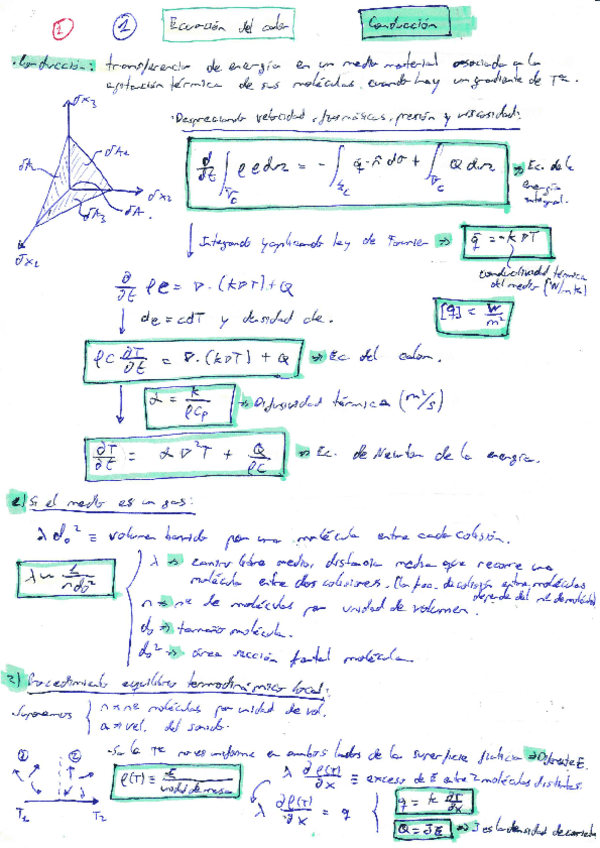 1 1 Ecuación del calor Conducción
· Conducción: transferencia de energía en un medio material asociada a la
agitación térmica de sus moléculas, cuando hay un gradiente de Tª.
· Despreciando velocidad, presión y viscosidad:
δx3
δA1 δA2
δA3 δA
δx2
δx1
∂/∂t ∫ ρ e dv = - ∫ q·n dσ + ∫ Q dv => Ec. de la
energía
integral.
Integrando y aplicando ley de Fourier => q = -k∇T
conductividad térmica
del medio (W/mK)
∂/∂t ρe = ∇·(k∇T) + Q
[q] = W/m²
de = cdT y densidad cte.
ρc ∂T/∂t = ∇·(k∇T) + Q => Ec. del calor.
α = k/ρcp => Difusividad térmica (m²/s)
∂T/∂t = α∇²T + Q/ρc => Ec. de Newton de la energía.
Si el medio es un gas:
λ do² ≡ volumen barrido por una molécula entre cada colisión.
λ ~ 1/ndo²
λ => camino libre medio, distancia media que recorre una
molécula entre dos colisiones. colisión entre moléculas
depende del nº de moléculas
n => nº de moléculas por unidad de volumen.
do => tamaño molécula.
do² => área sección frontal molécula.
2) Procedimiento equilibrio termodinámico local:
· Suponemos n => nº moléculas por unidad de vol.
a => vel. del sonido.
· Si la Tª no es uniforme en ambos lados de la superficie => Diferente E.
1 2
T1 T2
ρ(T) ≡ E/unidad de masa
λ ∂ρ(T)/∂x ≡ exceso de E entre 2 moléculas distintas.
λ ∂ρ(T)/∂x = q
q = k ∂T/∂x
Q = J E => J es la densidad de corriente